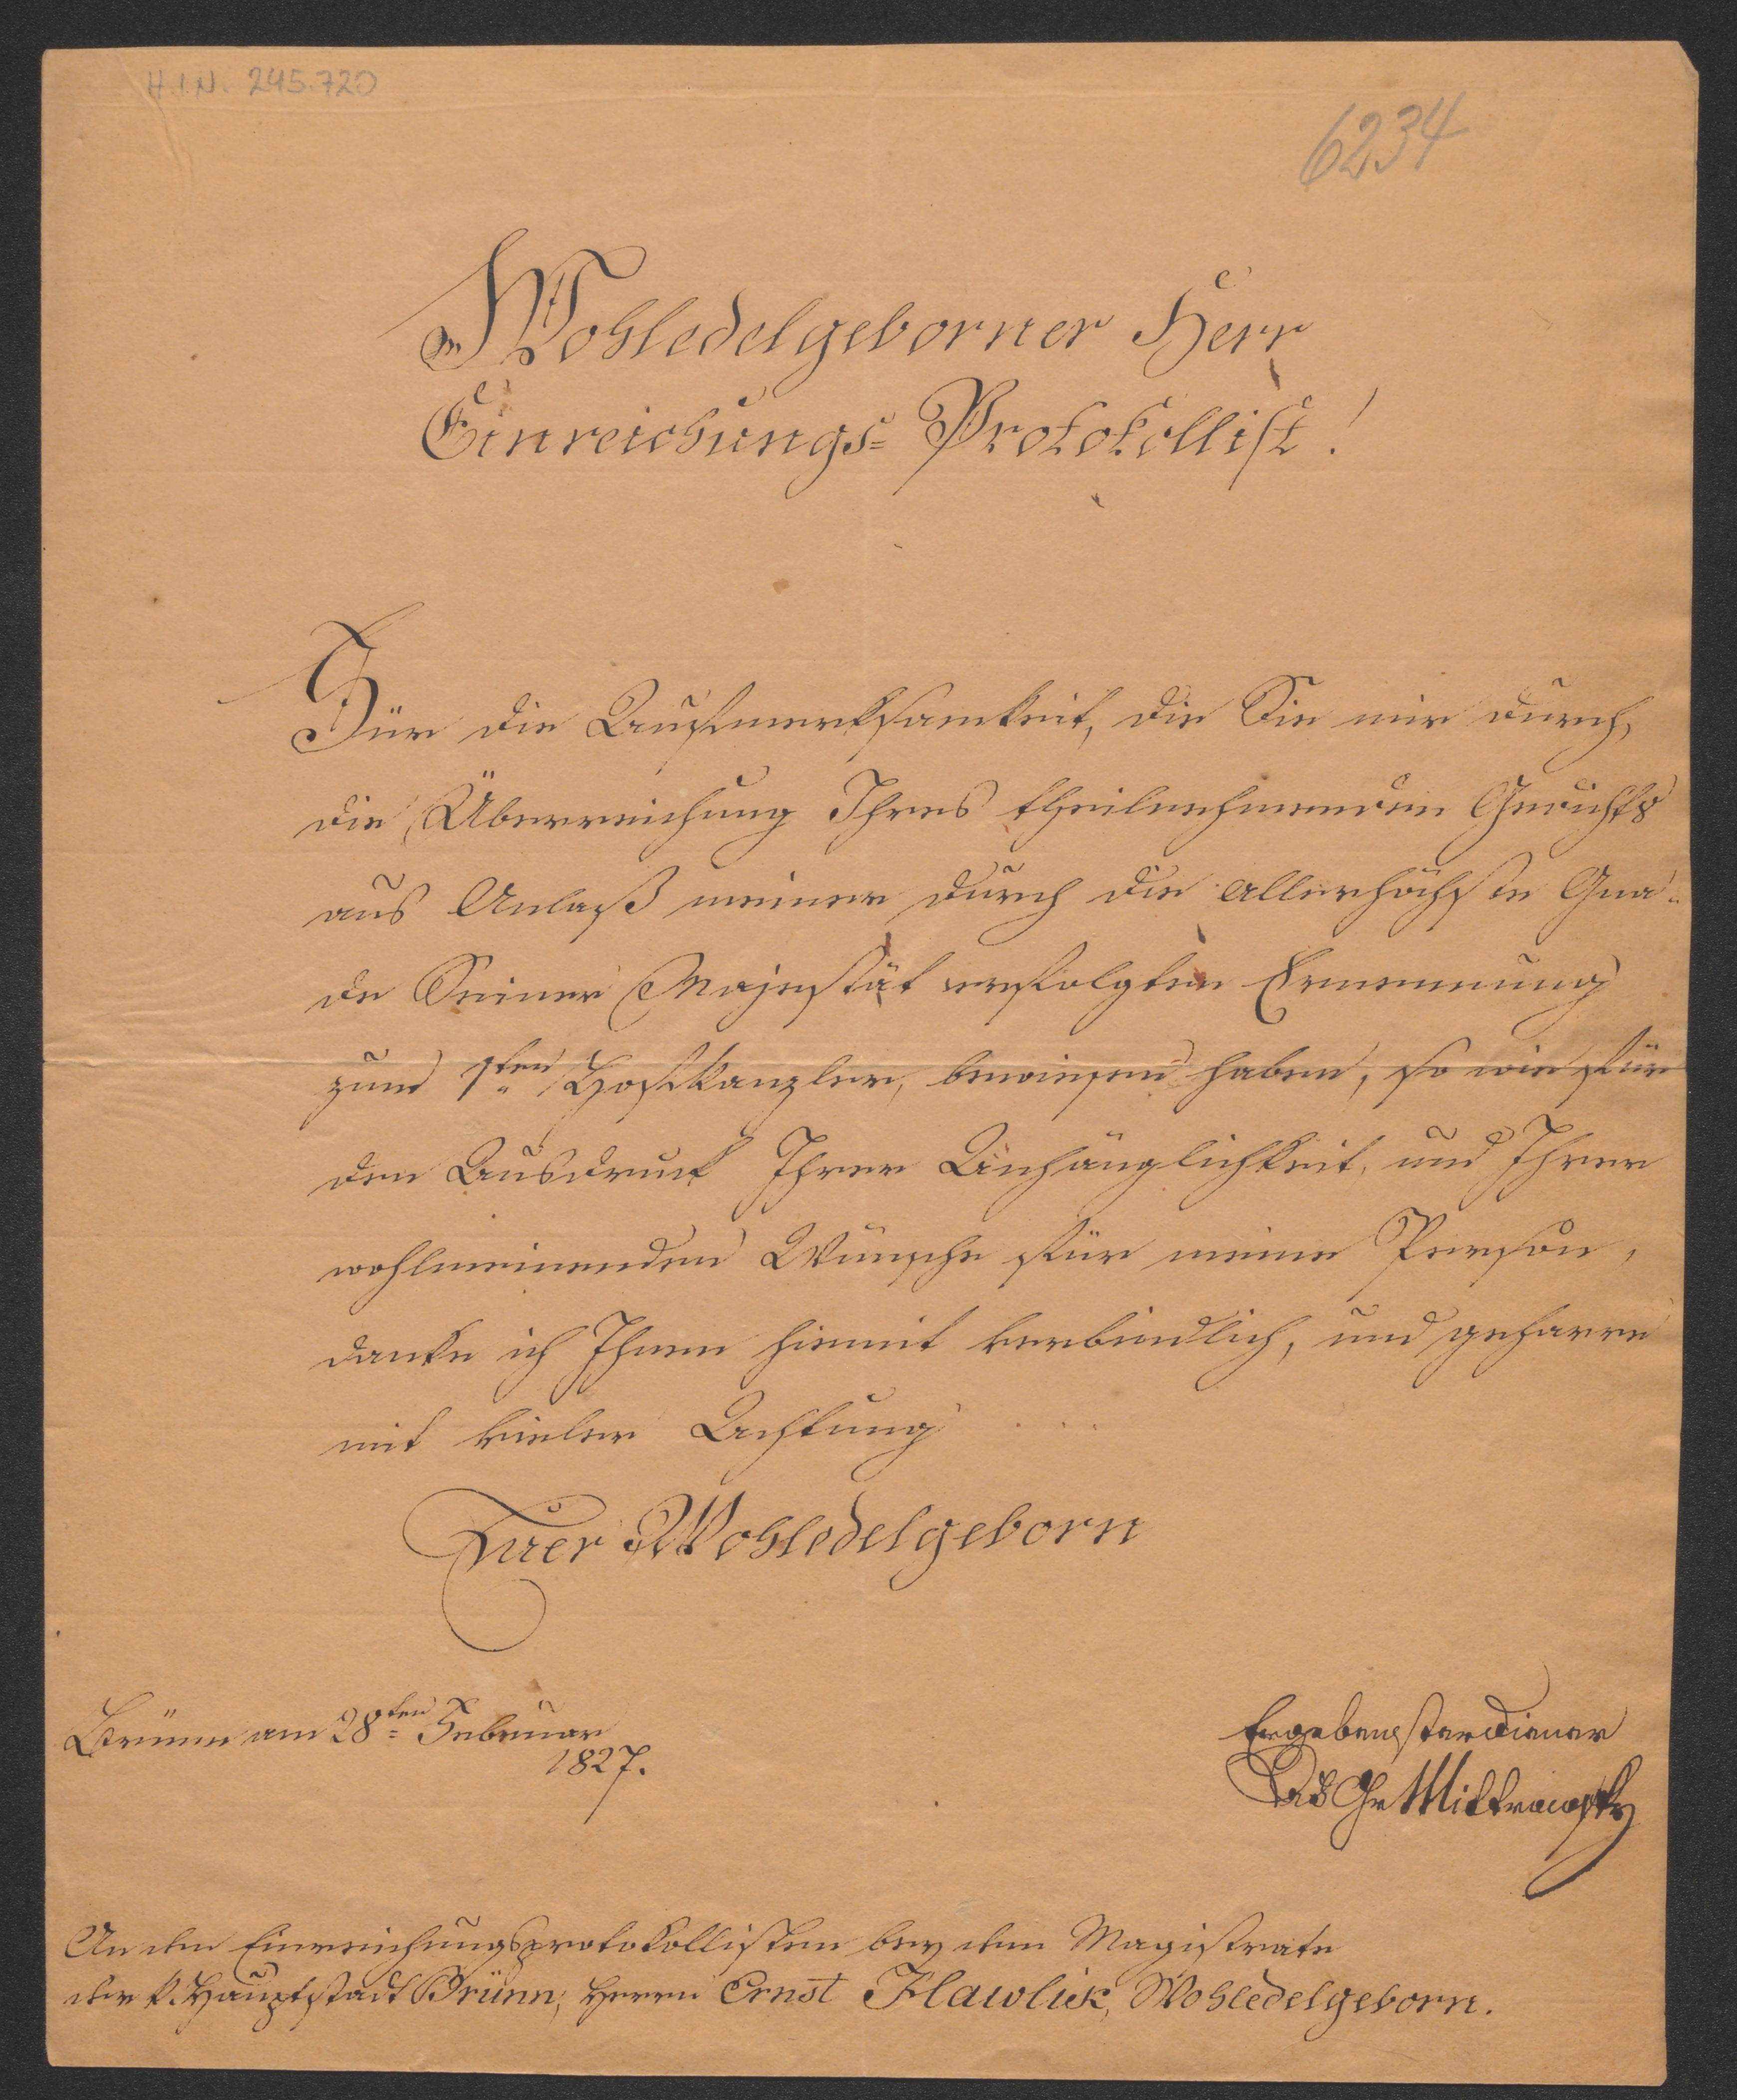 H.I.N. 245.720
6234
Wohledelgeborner Herr
Einreichungs= Protokollist!
Für die Aufmerksamkeit, die Sie mir durch
die Überreichung Ihres theilnehmenden Gedichts
aus Anlaß meiner durch die allerhöchste Gna=
de Seiner Majestät erfolgten Ernennung
zum 1ten Hofkanzler, bewiesen haben, so wie für
den Ausdruck Ihrer Anhänglichkeit, und Ihrer
wohlmeinenden Wünsche für meine Person,
danke ich Ihnen hiemit verbindlich, und geharre
mit vieler Achtung
Euer Wohledelgeborn
Brünn am 28ten Februar
1827.
Ergebenster Diener
Gr Mittrowsky
An den Einreichungsprotokollisten bey dem Magistrate
der k. Hauptstadt Brünn, Herrn Ernst Hawlick, Wohledelgeborn.